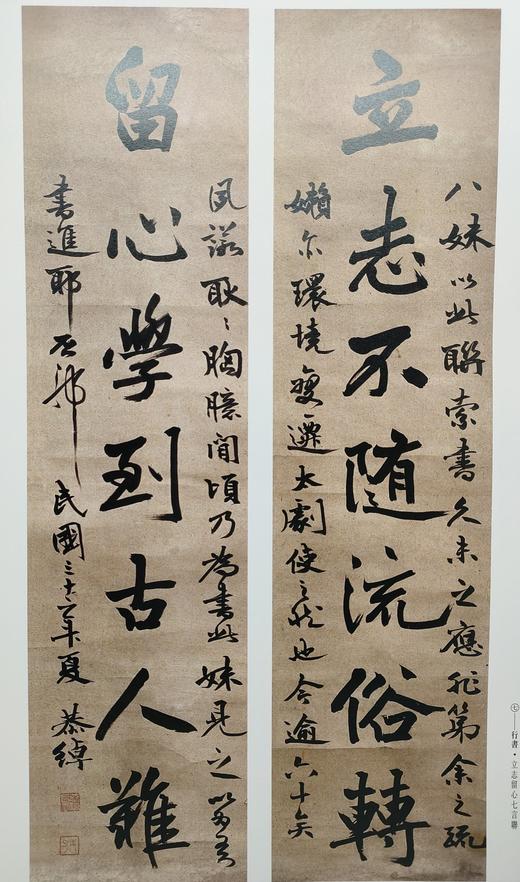 立志不隨流俗轉
留心學到古人難
八妹以此聯索書久未之應非第余之疏
嬾尔環境變遷太劇使之然也今逾六十矣
夙諾耿〻胸臆間頃乃為書此妹見之以為
書進耶
民國三十六年夏 恭綽
㊆——行書·立志留心七言聯